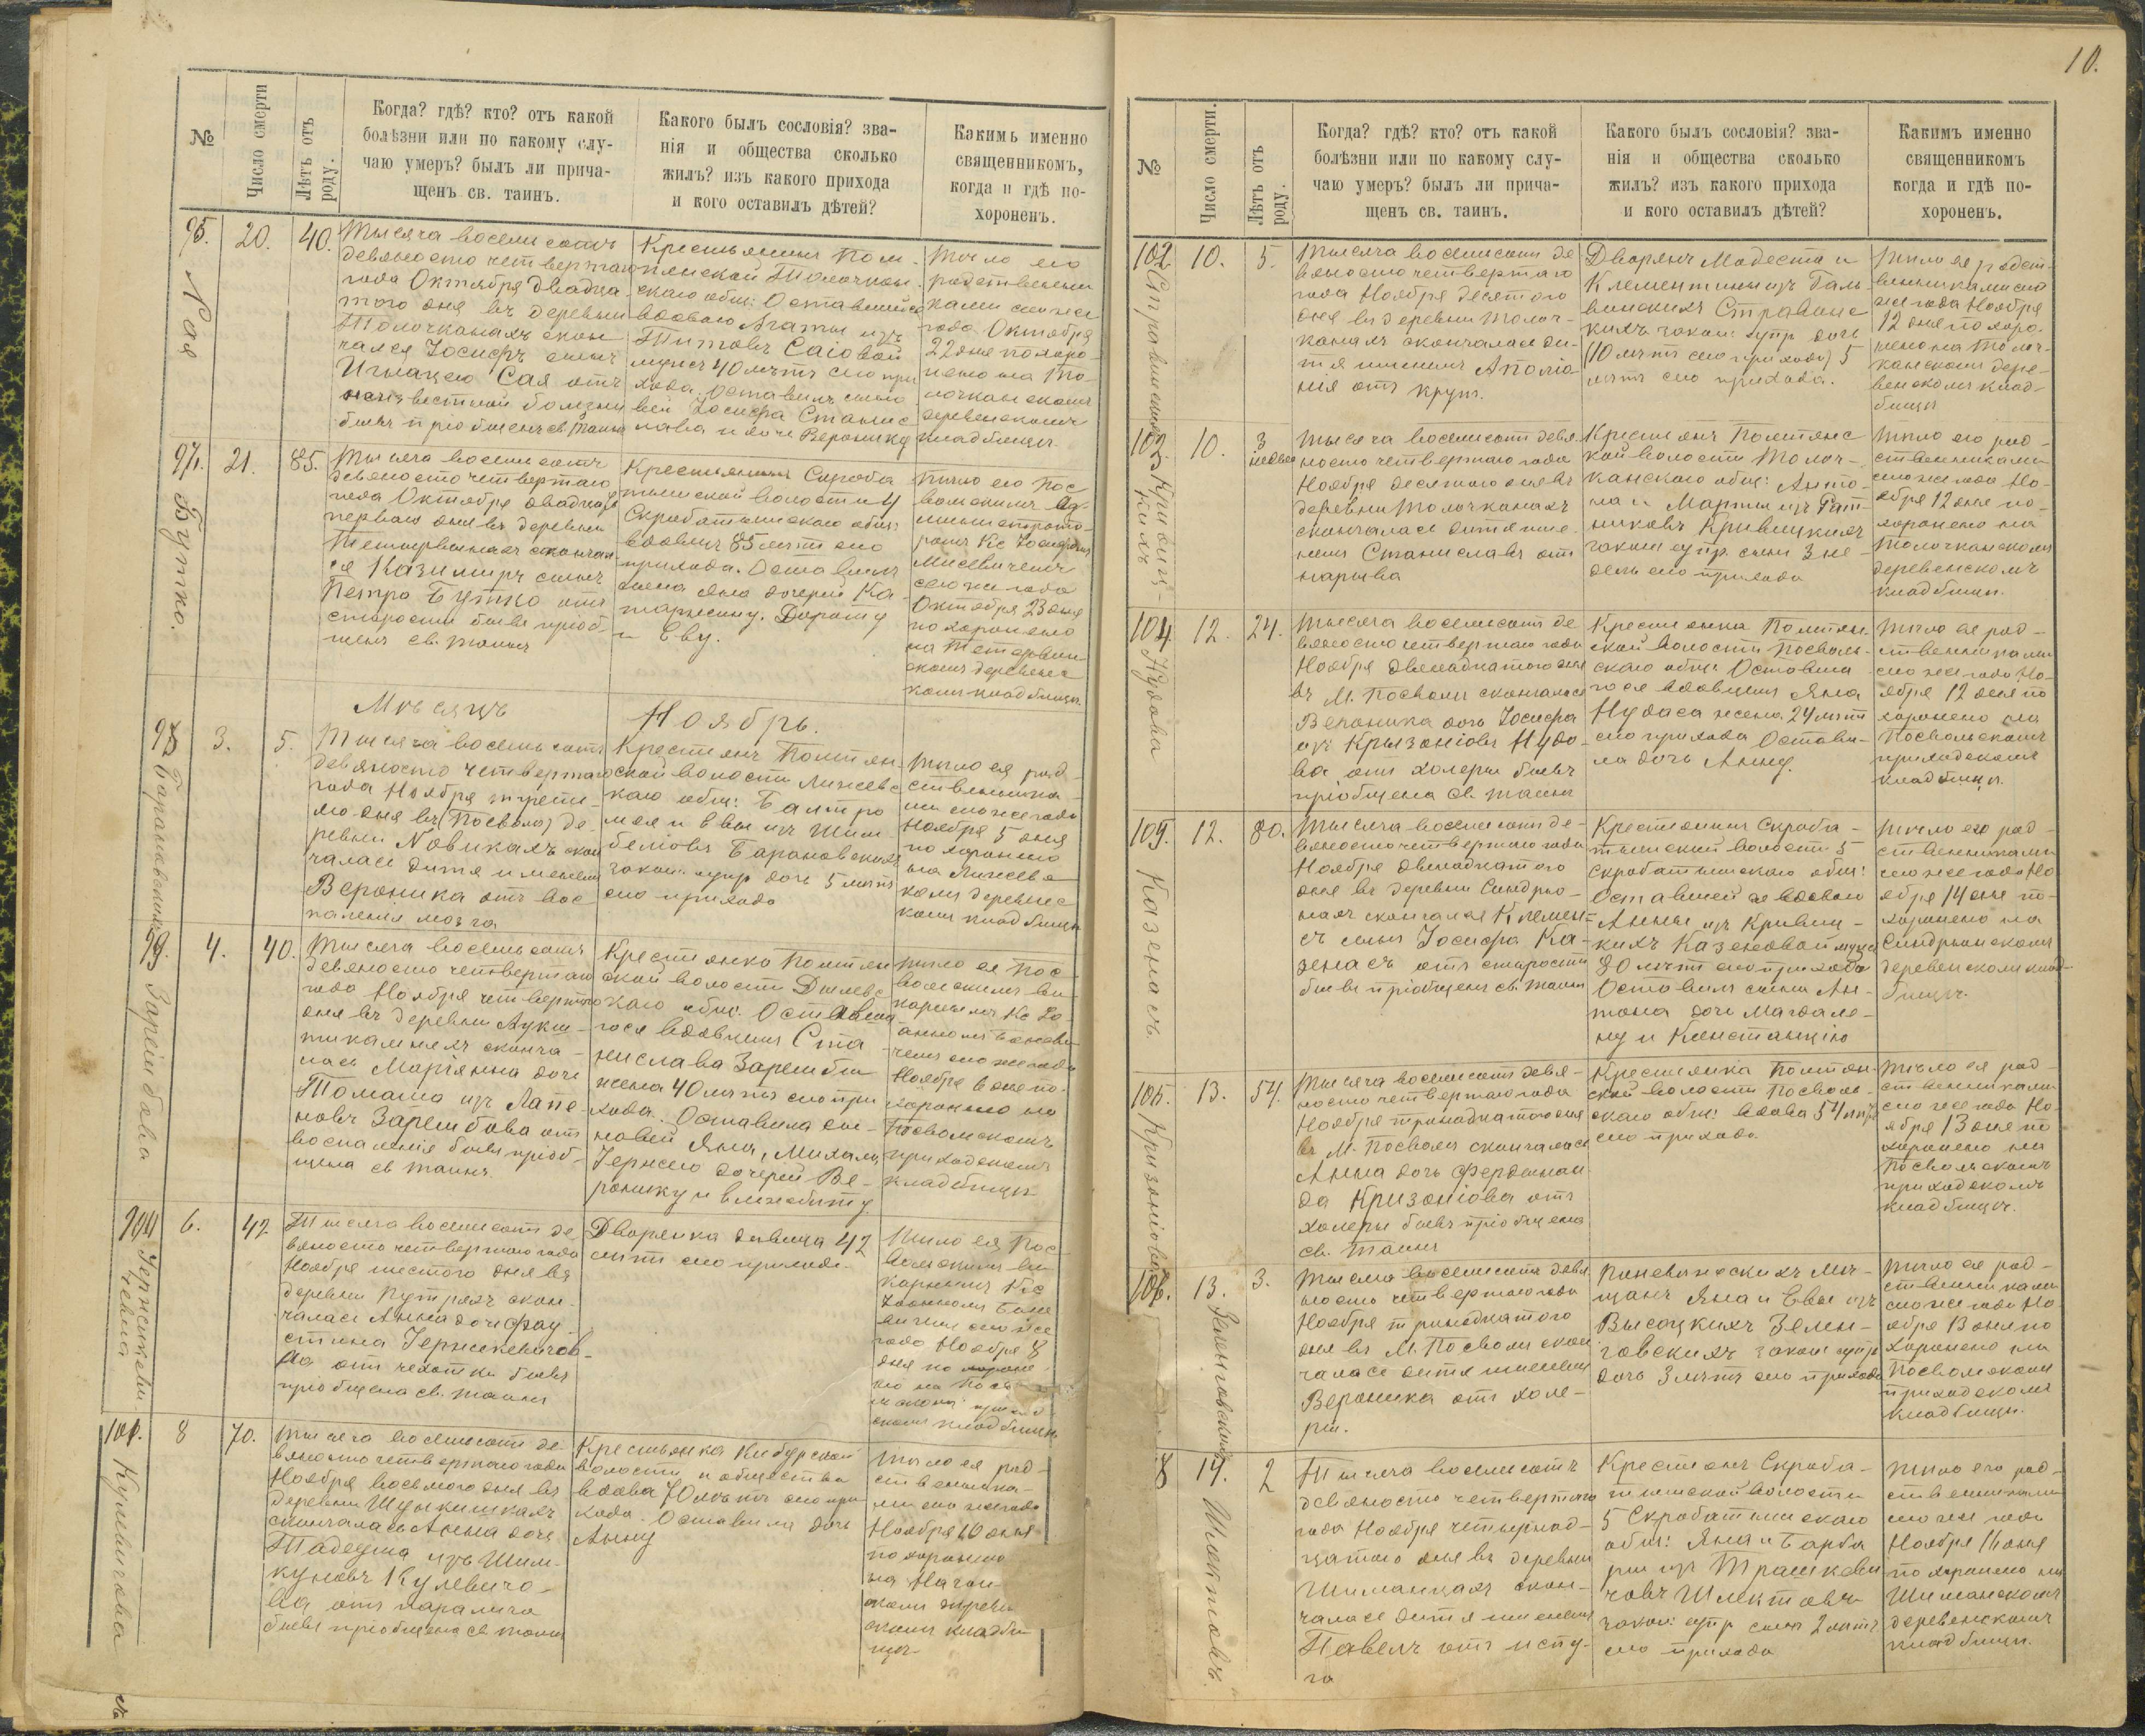 10.
№
Число смерти
Лѣтъ отъ роду.
Когда? гдѣ? кто? отъ какой
болѣзни или по какому слу-
чаю умеръ? былъ ли прича-
щенъ св. таинъ.
Какого былъ сословія? зва-
нія и общества сколько
жилъ? изъ какого прихода
и кого оставилъ дѣтей?
Какимъ именно
священникомъ,
когда и гдѣ по-
хороненъ.
20.
40.
Тысяча восемь сотъ
девяносто четвертаго
года Октября двадца-
того дня въ деревни
Толочканахъ скон
чался Іосифъ сынъ
Игнацего Сая отъ
неизвестной болезни
бывъ пріобщенъ св. Таинъ
Крестьянинъ Пом-
Толочкан-
скаго общ: Оставшейся
вдовою Агаты изъ
Титовъ Саіовой
мужъ 40 лѣтъ сего при
хода. Оставилъ сыно
вей Іосифа Станис
лава и дочь Веронику
Тѣло его
родственни
ками сего же
года Октября
22 дня похоро-
нено на То-
лочканскомъ
деревенскомъ
кладбищѣ
21.
85.
Бутко.
Тысяча восемь сотъ
девяносто четвертаго
года Октября двадцать
перваго дня въ деревни
скончал
ся Казимиръ сынъ
Петра Бутко отъ
старости бывъ пріоб-
щенъ св. таинъ
Крестьянинъ Скроба
тишской волости 4
Скробатишскаго общ:
вдовецъ 85 лѣтъ сего
прихода. Оставилъ
сына Яна дочерей Ка-
таржину, Дороту
и Еву.
Тѣло его Пос
вольскимъ Ад-
министрато-
ромъ Кс Іосифомъ
Мисевичемъ
сего же года
Октября 23 дня
похоронено
на Тетервин-
скомъ деревенс
комъ кладбищѣ
Мѣсяцъ
Ноябрь.
3.
5.
Тысяча восемь сотъ
девяносто четвертаго
года Ноября третья-
го дня въ (Посволь) де-
ревни Новикахъ скон
чалась дитя именемъ
Вероника отъ вос
паленія мозга
Крестьянъ Помпян-
ской волости
каго общ: Балтро
мея и Евы изъ Шим-
беліовъ Барановскихъ
закон: супр дочь 5 лѣтъ
сего прихода
Тѣло ея род-
ственника-
ми сего же года
Ноября 5 дня
похоронено
на
комъ деревенс
комъ кладбищѣ
99.
4.
40.
Зарембова
Тысяча восемь сотъ
девяносто четвертаго
года Ноября четвертаго
дня въ деревни Аукш-
тикальняхъ сконча-
лась Маріянна дочь
Томаша изъ Лапе-
новъ Зарембова отъ
воспаленія бывъ пріоб-
щена св таинъ.
Крестьянка Помпян
ской волости
каго общ. Оставша
гося вдовцемъ Ста
нислава Зарембы
жена 40 лѣтъ сего при
хода. Оставила сы-
новей Яна, Михала,
дочерей Ве-
ронику и Елжбету
Тѣло ея Пос
вольскимъ ви-
каріемъ Кс Іо-
анномъ
сего же года
Ноября 6 дня по-
хоронено на
Посвольскомъ
приходскомъ
кладбищѣ
6.
42
Тысяча восемьсотъ де
вяносто четвертаго года
Ноября шестого дня въ
деревни Путряхъ скон-
чалась Анна дочь Фау-
стина Чернкевичов-
на отъ чехотки бывъ
пріобщена св. таинъ
Дворянка девица 42
лѣтъ сего прихода.
Тѣло ея Пос
вольскимъ ви
каріемъ Кс
сего же
года Ноября 8
дня похороне
но на
прихо
скомъ кладбищѣ
8
70.
Кулевичова
Тысяча восемьсотъ де
вяносто четвертаго года
Ноября восьмого дня въ
деревни
скончалась Анна дочь
Тадеуша изъ Шим-
куновъ Кулевичо-
ва отъ паралича
бывъ пріобщена св таинъ
Крестьянка Кибурской
волости и общества
вдова 70 лѣтъ сего при
хода. Оставила дочь
Анну
Тѣло ея род-
ственника-
ми сего же года
Ноября 10 дня
похоронено
на
скомъ деревен
скомъ кладби
щѣ
№
Число смерти.
Лѣтъ отъ роду.
Когда? гдѣ? кто? отъ какой
болѣзни или по какому слу-
чаю умеръ? былъ ли прича-
щенъ св. таинъ.
Какого былъ сословія? зва-
нія и общества сколько
жилъ? изъ какого прихода
и кого оставилъ дѣтей?
Какимъ именно
священникомъ
когда и гдѣ по-
хороненъ.
102.
10.
5.
Тысяча восемьсотъ де
вяносто четвертаго
года Ноября десятого
дня въ деревни Толоч-
канахъ скончалась ди-
тя именемъ Аполіо-
нія отъ крупъ.
Дворянъ Модеста и
Клементины изъ Галь
винскихъ Стравинс
кихъ закон: супр дочь
(10 лѣтъ сего прихода) 5
лѣтъ сего прихода.
Тѣло ея родст-
венниками сего
же года Ноября
12 дня похоро-
нено на Толоч-
канскомъ дере-
венскомъ клад-
бищѣ
103.
10.
3
недѣли
Тысяча восемьсотъ девя
носто четвертаго года
Ноября десятого дня въ
деревни Толочканахъ
скончалась дитя име-
немъ Станиславъ отъ
нарыва
Крестьянъ Помпянс
кой волости Толоч-
канскаго общ: Анто-
на и Марты изъ Рат-
никовъ Кривицкихъ
закон супр. сынъ 3 не-
дель сего прихода
Тѣло его род-
ственниками
сего же года Но-
ября 12 дня по-
хоронено на
Толочканскомъ
деревенскомъ
кладбищѣ.
104.
12.
24.
Тысяча восемьсотъ де
вяносто четвертаго года
Ноября двенадцатого дня
въ М. Посволи скончалась
Вероника дочь Іосифа
изъ Крызоніовъ Нудо-
ва отъ холеры бывъ
пріобщена св. таинъ
Крестьянка Помпян-
ской волости Посволь-
скаго общ: Оставша
гося вдовцемъ Яна
Нудаса жена 24 лѣтъ
сего прихода Остави-
ла дочь Анну.
Тѣло ея род-
ственниками
сего же года Но-
ября 12 дня по
хоронено на
Посвольскомъ
приходскомъ
кладбищѣ.
105.
12.
80.
Казенасъ.
Тысяча восемьсотъ де-
вяносто четвертаго года
Ноября двенадцатого
дня въ деревни Синдрю-
нахъ скончался Клемен-
съ сынъ Іосифа Ка-
зенасъ отъ старости
бывъ пріобщенъ св. таинъ
Крестьянинъ Скроба-
тишской волости 5
Скробатишскаго общ:
Оставшейся вдовою
Анны изъ Кривиц-
кихъ Казеновой мужъ
80 лѣтъ сего прихода
Оставилъ сына Ан-
тона дочь Магдале-
ну и Констанцію
Тѣло его род-
ственниками
сего же года Но
ября 14 дня по-
хоронено на
Синдрюнскомъ
деревенскомъ клад-
бищѣ.
13.
54.
Тысяча восемьсотъ девя-
носто четвертаго года
Ноября тринадцатого дня
въ М. Посволи скончалась
Анна дочь Фердинан
да Кризоніова отъ
холеры бывъ пріобщена
св. таинъ
Крестьянка Помпян-
ской волости Посволь-
скаго общ: вдова 54 лѣтъ
сего прихода
Тѣло ея род-
ственниками
сего же года Но-
ября 13 дня по
хоронено на
Посвольскомъ
приходскомъ
кладбищѣ.
13.
3.
Тысяча восемьсотъ девя
носто четвертаго года
Ноября тринадцатого
дня въ М. Посволи скон
чалась дитя именемъ
Вероника отъ холе-
ры.
Поневежскихъ Мѣ-
щанъ Яна и Евы изъ
Высоцкихъ Зелен-
говскихъ закон супр
дочь 3 лѣтъ сего прихода
Тѣло ея род-
ственниками
сего же года Но-
ября 13 дня по
хоронено на
Посвольскомъ
приходскомъ
кладбищѣ.
14.
2
Тысяча восемьсотъ
девяносто четвертаго
года Ноября четырнад-
цатого дня въ деревни
Шиманцахъ скон-
чалась дитя именемъ
Павелъ отъ испу-
га
Крестьянъ Скроба-
тишской волости
5 Скробатишскаго
общ: Яна и Барба
ры изъ Трашкеви
човъ
закон: супр сынъ 2 лѣтъ
сего прихода
Тѣло его род-
ственниками
сего же года
Ноября 16 дня
похоронено на
Шиманскомъ
деревенскомъ
кладбищѣ.